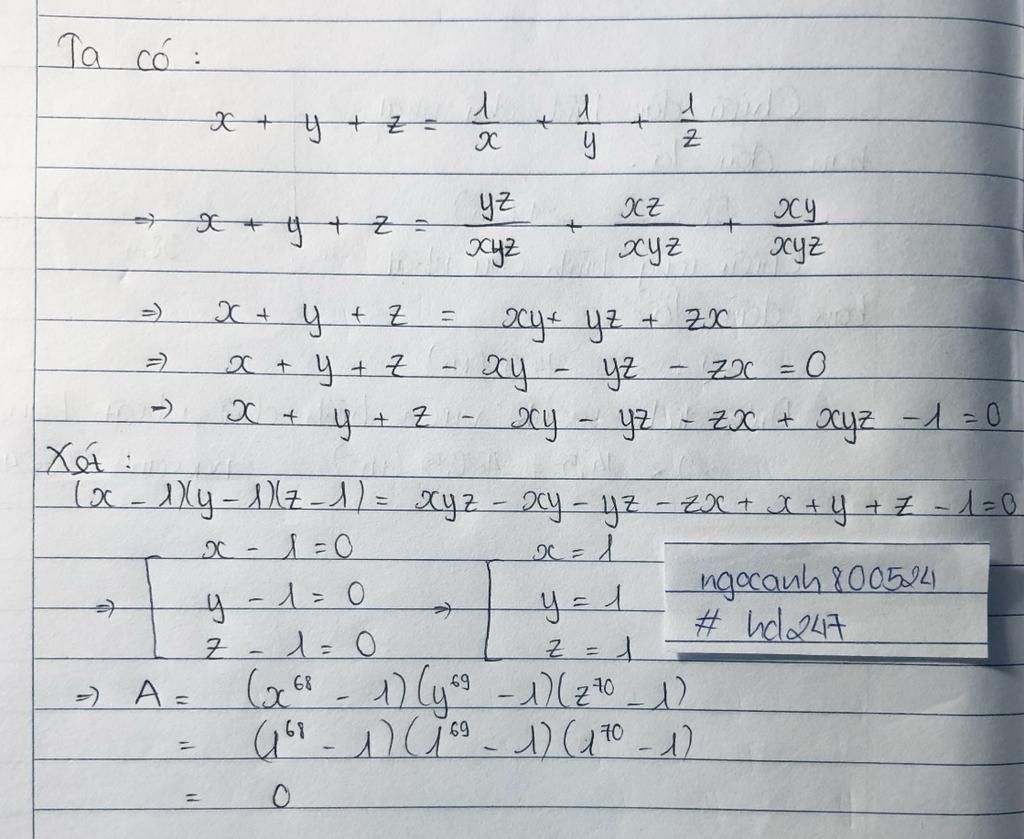 Ta có :
x + y + z = 1/x + 1/y + 1/z
=> x + y + z = yz/xyz + xz/xyz + xy/xyz
=> x + y + z = xy + yz + zx
=> x + y + z - xy - yz - zx = 0
=> x + y + z - xy - yz - zx + xyz - 1 = 0
Xét :
(x - 1)(y - 1)(z - 1) = xyz - xy - yz - zx + x + y + z - 1 = 0
x - 1 = 0 x = 1
=> [ y - 1 = 0 => [ y = 1
z - 1 = 0 z = 1
ngocanh800524
# hd247
=> A = (x⁶⁸ - 1)(y⁶⁹ - 1)(z⁷⁰ - 1)
= (1⁶⁸ - 1)(1⁶⁹ - 1)(1⁷⁰ - 1)
= 0